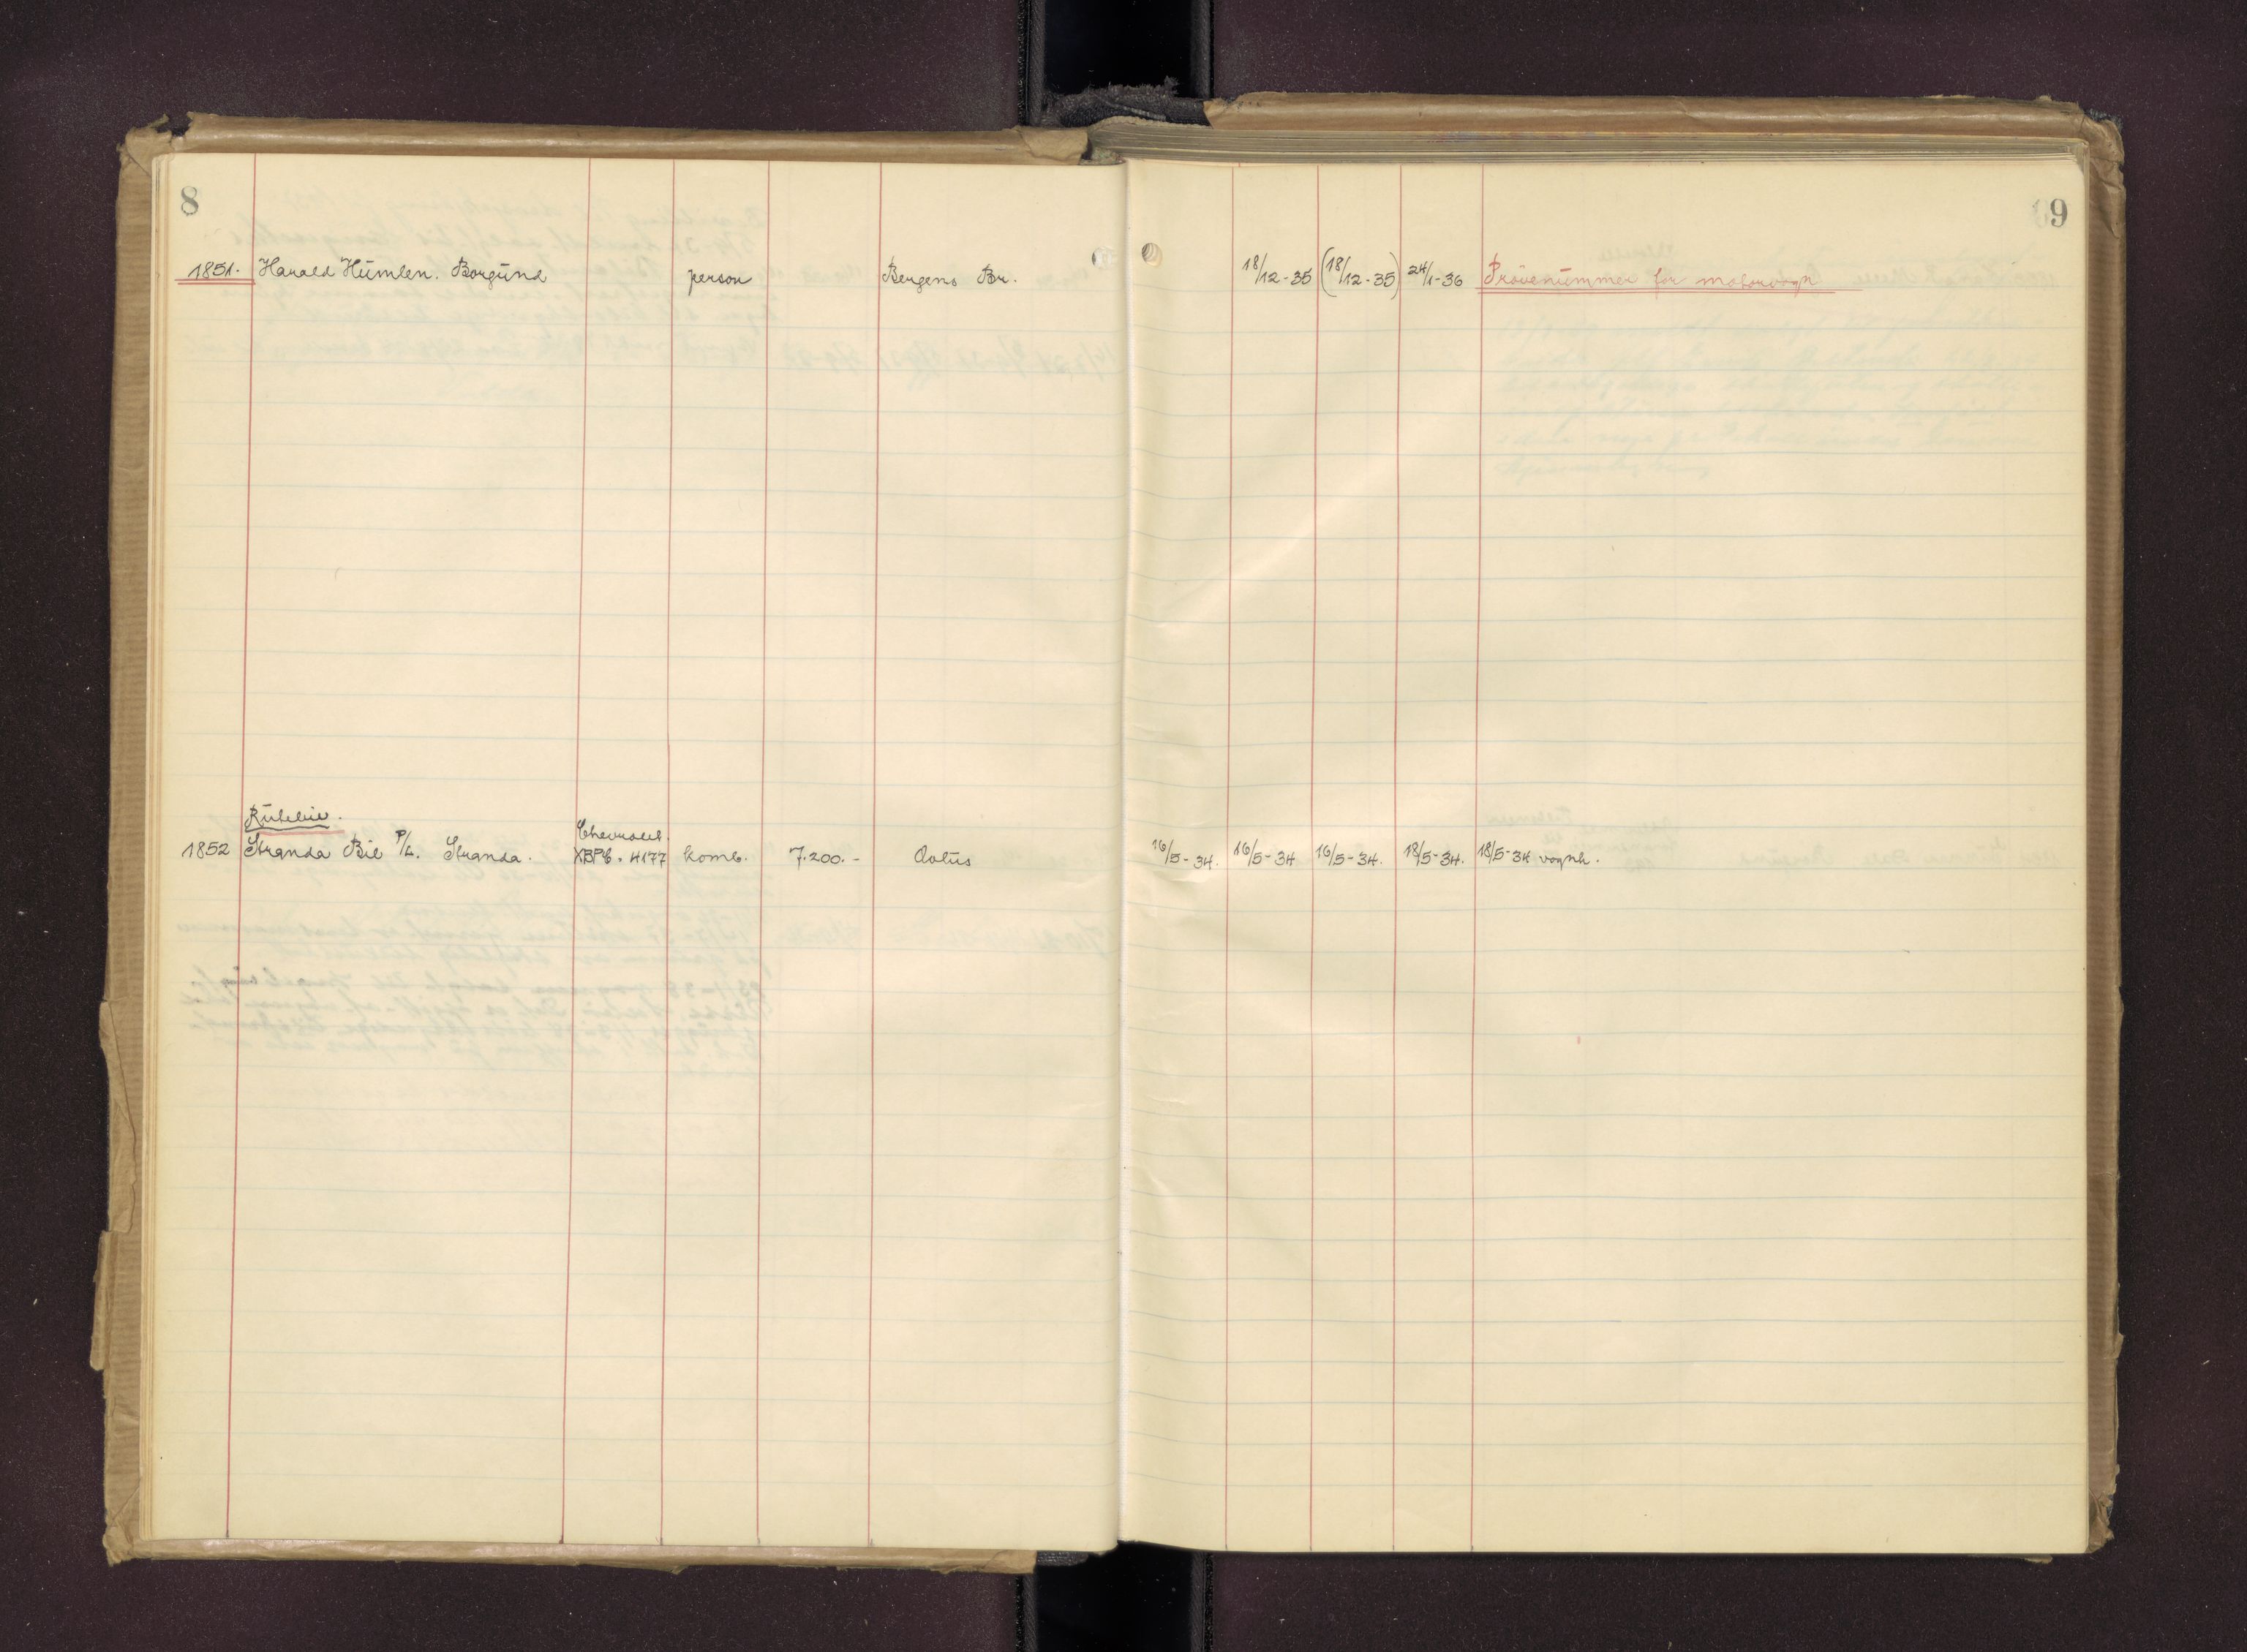 8
9
1851. Harald Humlen. Borgund person Bergens Br. 18/12-35 (18/12-35) 24/1-36 Prøvenummer for motorvogn
Rutebil.
Chevrolet.
1852 Stranda Bil P/L. Stranda. XBPb. 4177 komb. 7.200.- Aolus 16/5-34. 16/5-34 16/5-34. 18/5-34. 18/5-34 vognk.